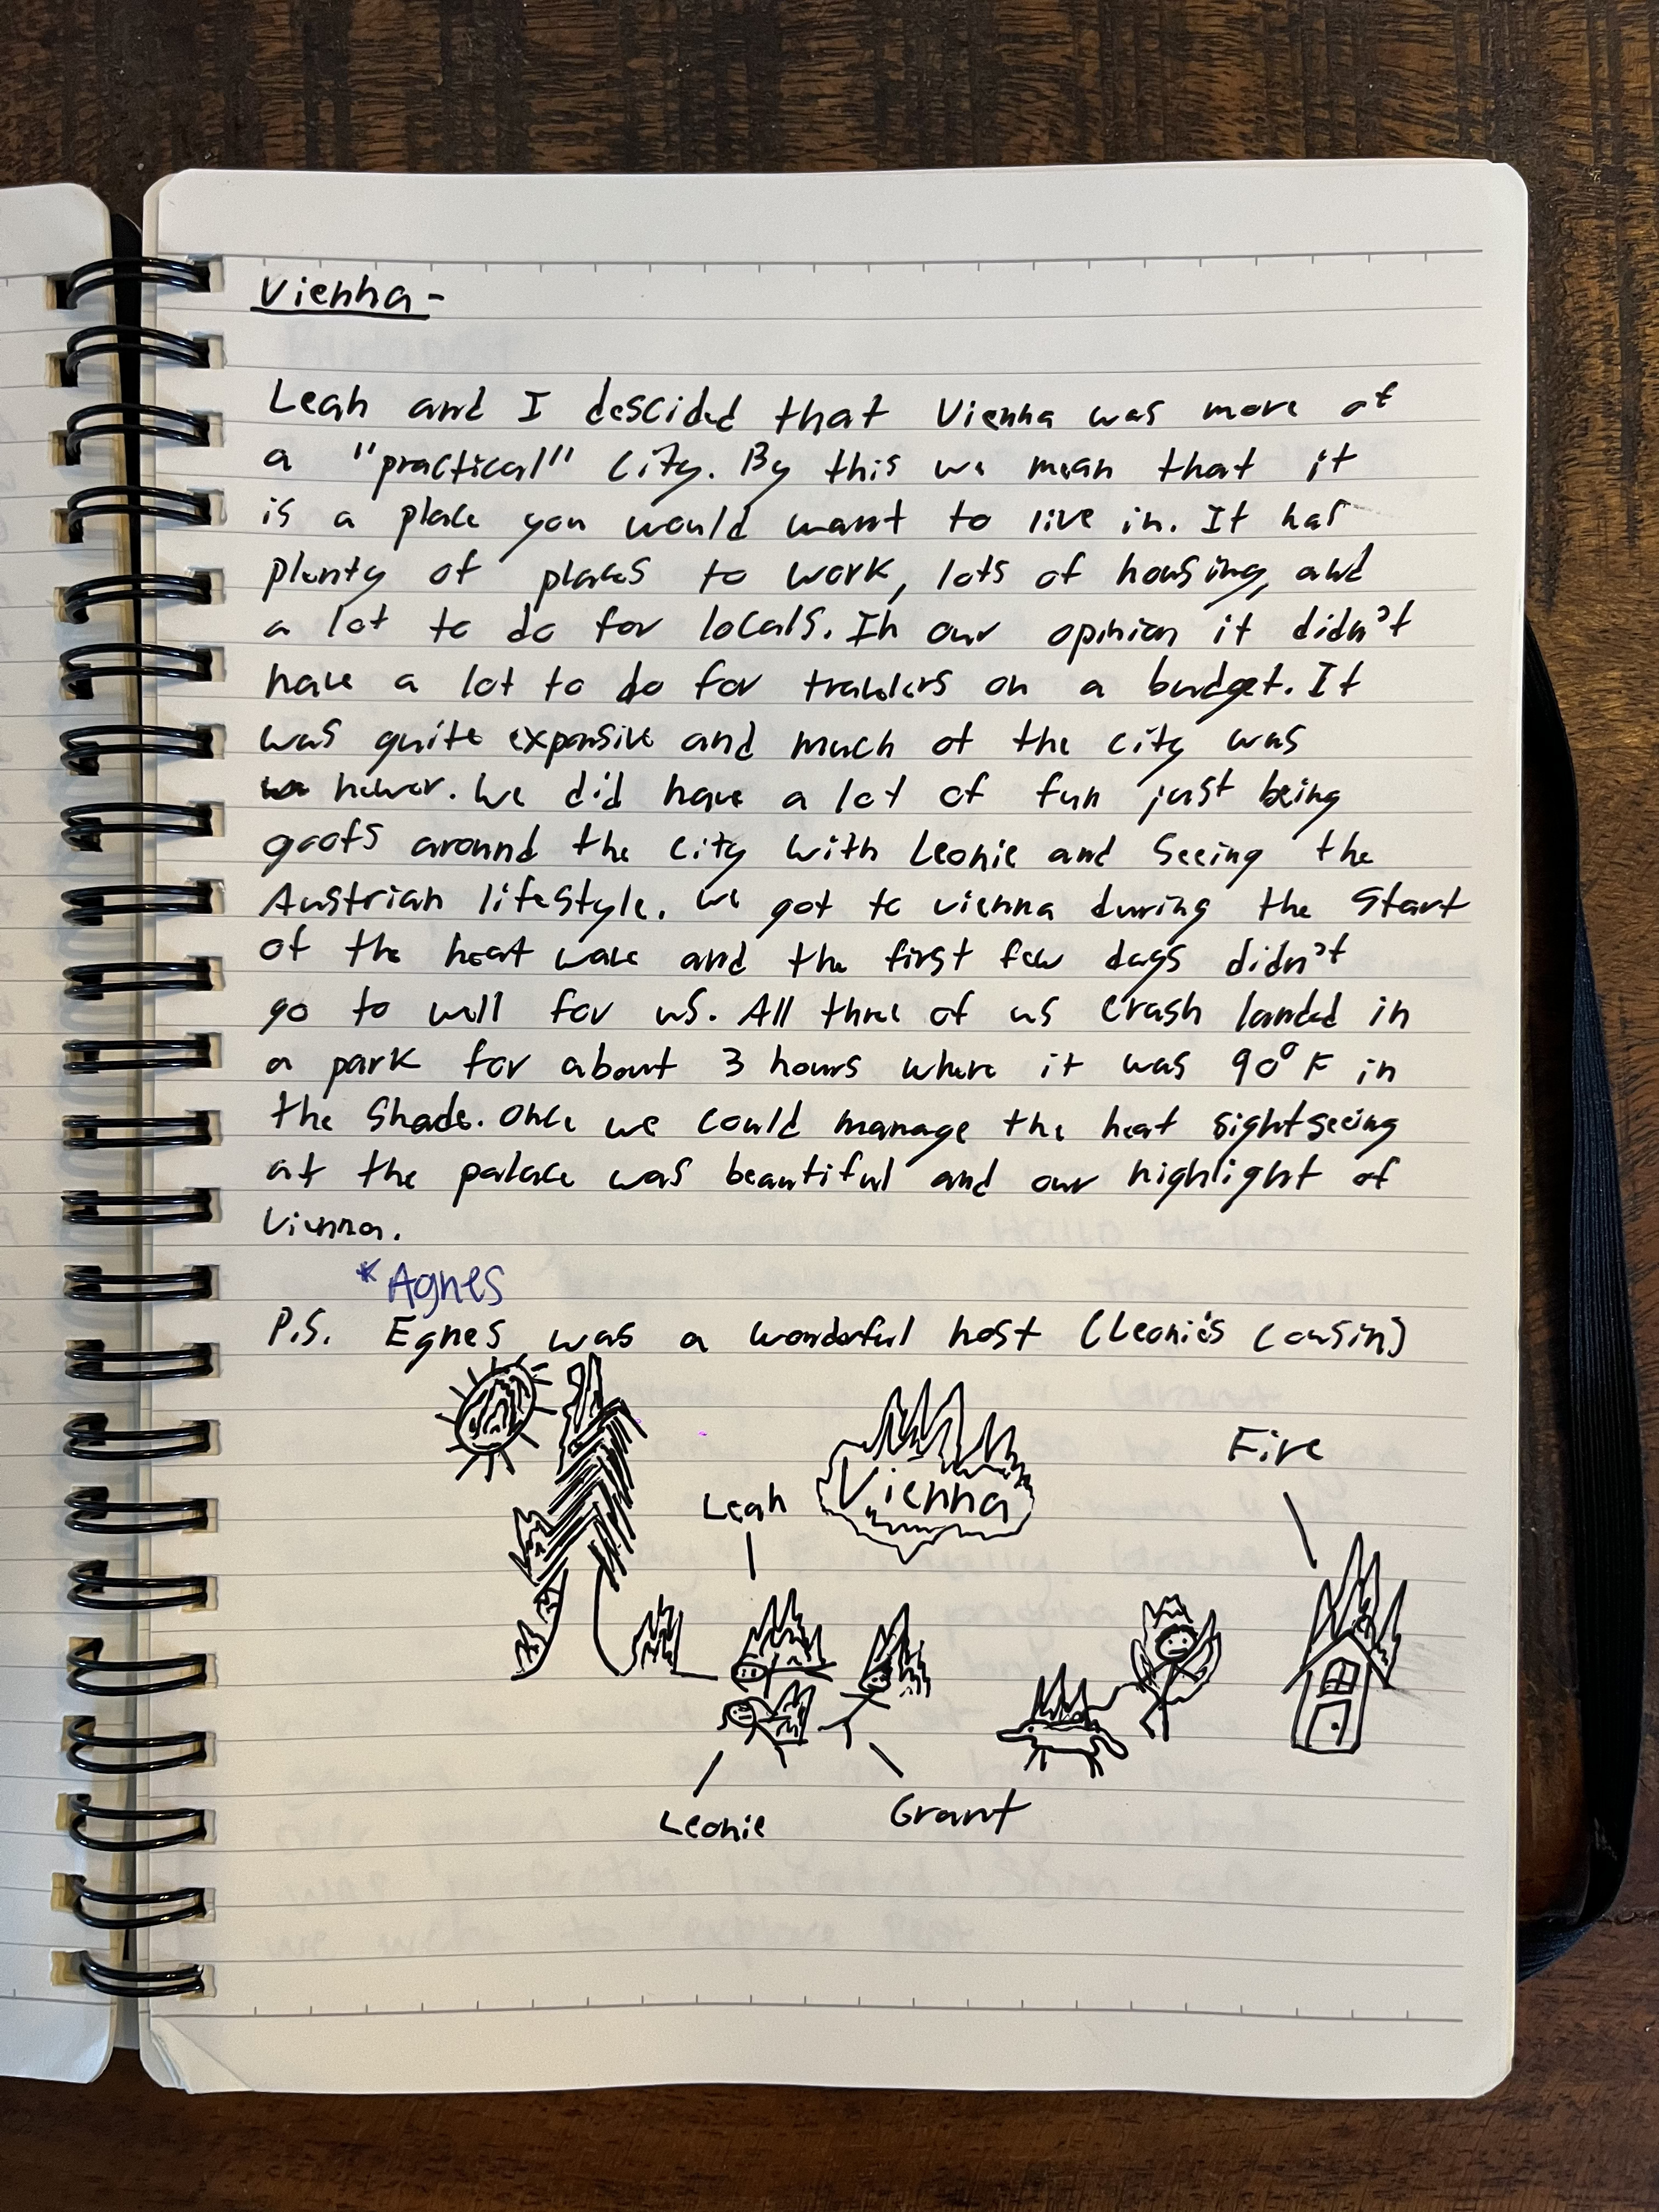 Vienna -
Leah and I descided that Vienna was more of
a "practical" city. By this we mean that it
is a place you would want to live in. It has
plenty of places to work, lots of housing, and
a lot to do for locals. In our opinion it didn't
have a lot to do for travlers on a budget. It
was quite expensive and much of the city was
newer. We did have a lot of fun just being
goofs around the city with Leonie and seeing the
Austrian lifestyle. We got to vienna during the start
of the heat wave and the first few days didn't
go to well for us. All three of us crash landed in
a park for about 3 hours where it was 90° F in
the shade. Once we could manage the heat sightseeing
at the palace was beautiful and our highlight of
Vienna.
*Agnes
P.S. Egnes was a wonderful host (Leonie's cousin)
Fire
Vienna
Leah
Leonie
Grant